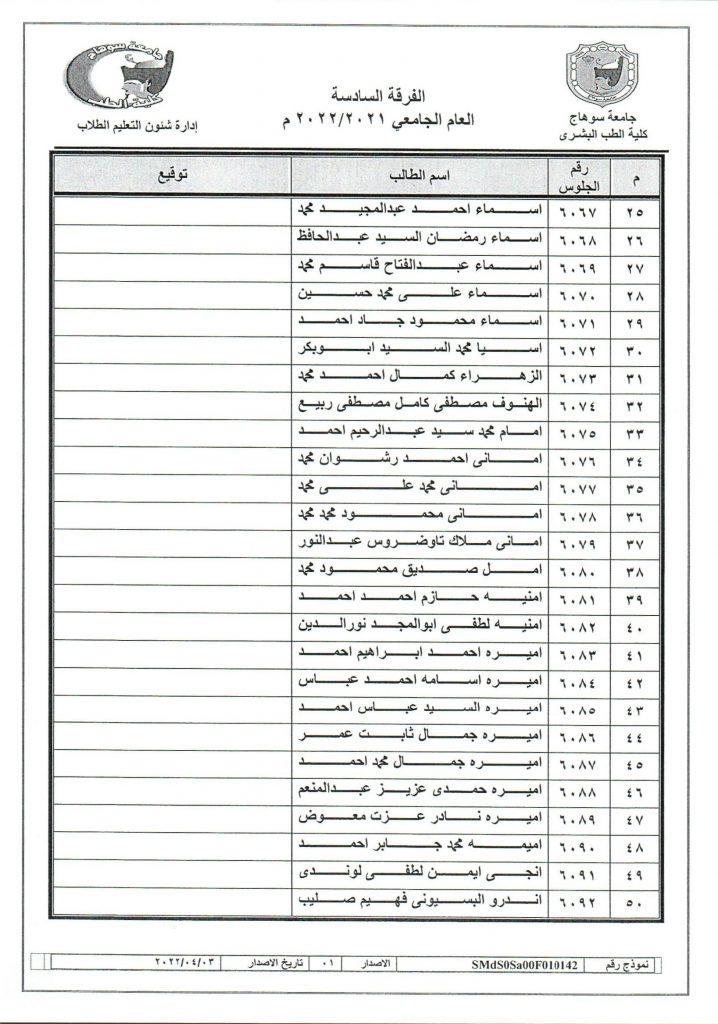 جامعة سوهاج
كلية الطب
جامعة سوهاج
كلية الطب البشرى
الفرقة السادسة
العام الجامعي ٢٠٢٢/٢٠٢١ م
إدارة شئون التعليم الطلاب
م رقم الجلوس اسم الطالب توقيع
٢٥ ٦٠٦٧ اسماء احمد عبدالمجيد محمد
٢٦ ٦٠٦٨ اسماء رمضان السيد عبدالحافظ
٢٧ ٦٠٦٩ اسماء عبدالفتاح قاسم محمد
٢٨ ٦٠٧٠ اسماء على محمد حسين
٢٩ ٦٠٧١ اسماء محمود جاد احمد
٣٠ ٦٠٧٢ اسيا محمد السيد ابوبكر
٣١ ٦٠٧٣ الزهراء كمال احمد محمد
٣٢ ٦٠٧٤ الهنوف مصطفى كامل مصطفى ربيع
٣٣ ٦٠٧٥ امام محمد سيد عبدالرحيم احمد
٣٤ ٦٠٧٦ امانى احمد رشوان محمد
٣٥ ٦٠٧٧ امانى محمد على محمد
٣٦ ٦٠٧٨ امانى محمود محمد محمد
٣٧ ٦٠٧٩ امانى ملاك تاوضروس عبدالنور
٣٨ ٦٠٨٠ امل صديق محمود محمد
٣٩ ٦٠٨١ امنيه حازم احمد احمد
٤٠ ٦٠٨٢ امنيه لطفى ابوالمجد نورالدين
٤١ ٦٠٨٣ اميره احمد ابراهيم احمد
٤٢ ٦٠٨٤ اميره اسامه احمد عباس
٤٣ ٦٠٨٥ اميره السيد عباس احمد
٤٤ ٦٠٨٦ اميره جمال ثابت عمر
٤٥ ٦٠٨٧ اميره جمال محمد احمد
٤٦ ٦٠٨٨ اميره حمدى عزيز عبدالمنعم
٤٧ ٦٠٨٩ اميره نادر عزت معوض
٤٨ ٦٠٩٠ اميمه محمد جابر احمد
٤٩ ٦٠٩١ انجى ايمن لطفى لوندى
٥٠ ٦٠٩٢ اندرو البسيونى فهيم صليب
نموذج رقم SMdS0Sa00F010142 الاصدار ٠١ تاريخ الاصدار ٢٠٢٢/٠٤/٠٣